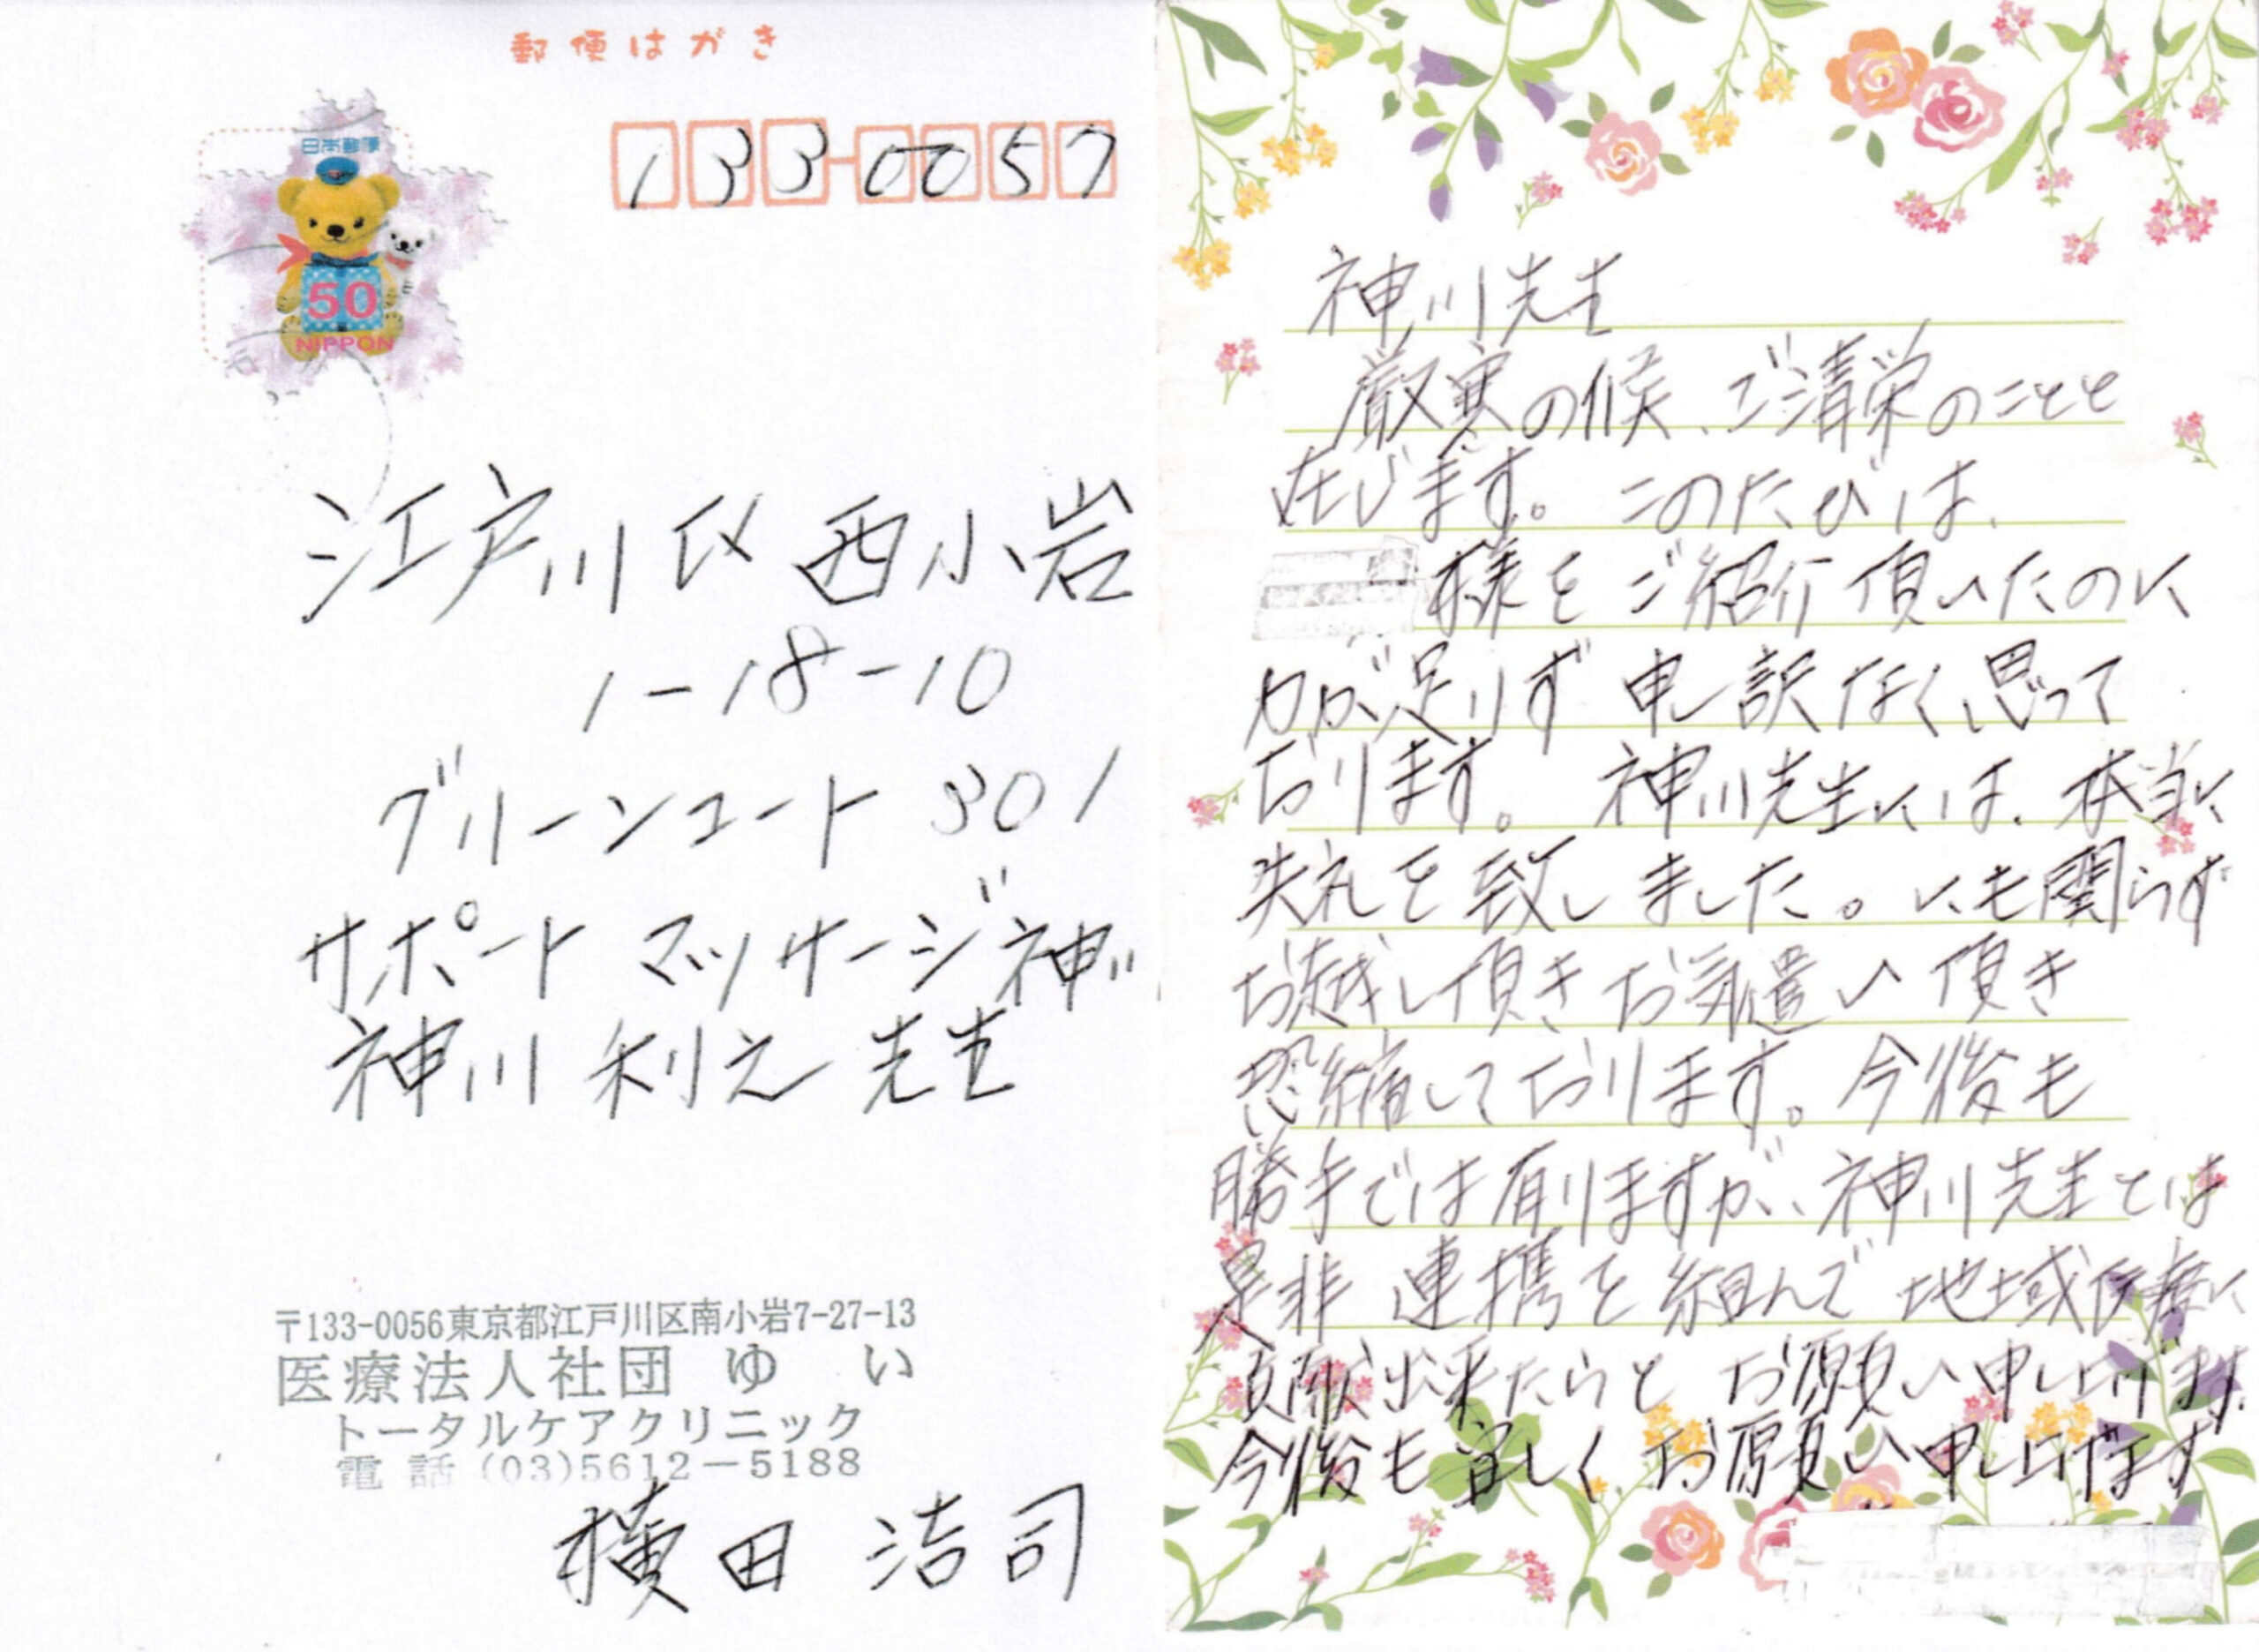 郵便はがき
日本郵便
50
NIPPON
133-0057
江戸川区西小岩
1-18-10
グリーンコート301
サポートマッサージ神川
神川利之先生
〒133-0056東京都江戸川区南小岩7-27-13
医療法人社団 ゆ い
トータルケアクリニック
電話 (03)5612-5188
横田 洁司
神川先生
厳寒の候、ご清栄のことと
在じます。このたびは、
様をご紹介頂いたのに
力が足りず申し訳なく思って
おります。神川先生には、本当に
失礼を致しました。にも関らず
お越し頂きお気遣い頂き
恐縮しております。今後も
勝手では有りますが、神川先生とは
是非連携を組んで地域医療に
貢献出来たらとお願い申し上げます。
今後も宜しくお願い申し上げます